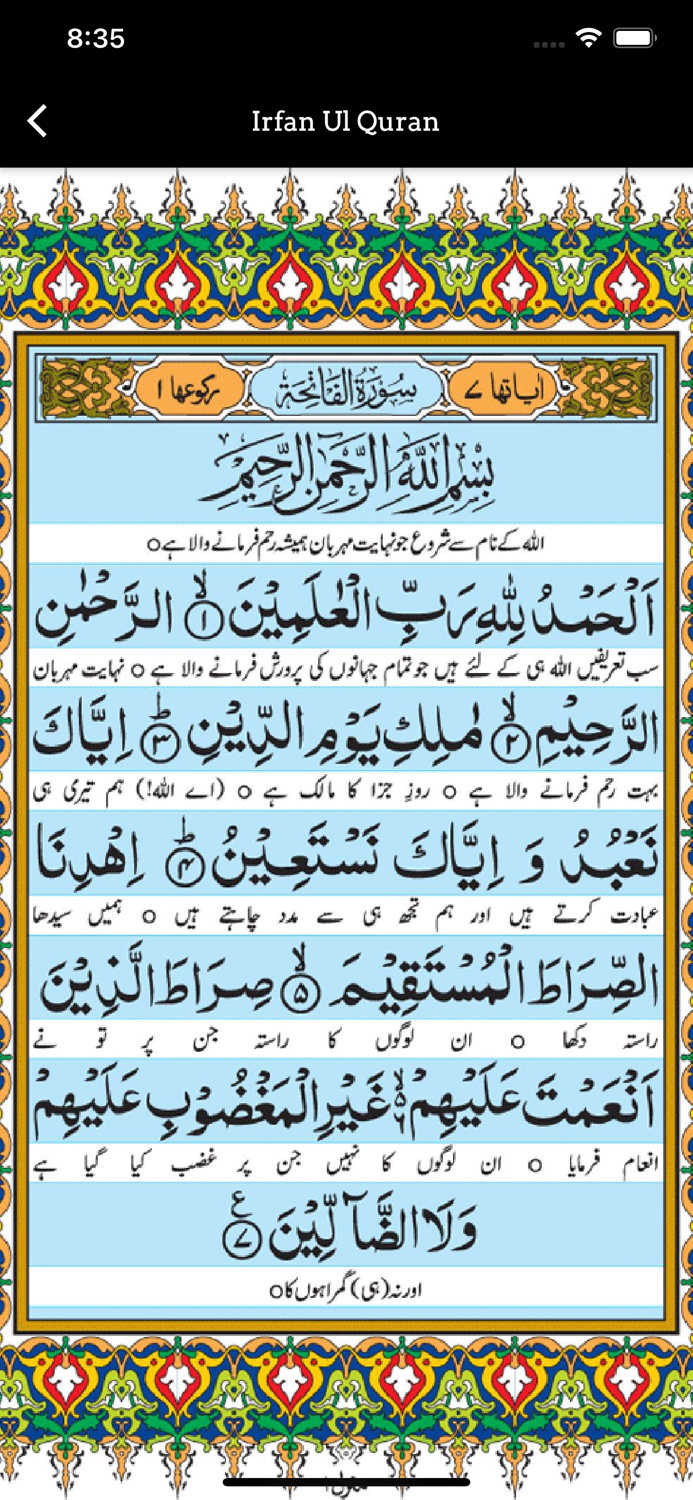 8:35
Irfan Ul Quran
اٰیاتها ٧ سُوْرَةُ الْفَاتِحَةِ رکوعها ١
بِسْمِ اللّٰهِ الرَّحْمٰنِ الرَّحِيْمِ
اللہ کے نام سے شروع جو نہایت مہربان ہمیشہ رحم فرمانے والا ہے o
اَلْحَمْدُ لِلّٰهِ رَبِّ الْعٰلَمِيْنَ ۙ﴿۱﴾ الرَّحْمٰنِ
سب تعریفیں اللہ ہی کے لئے ہیں جو تمام جہانوں کی پرورش فرمانے والا ہے o نہایت مہربان
الرَّحِيْمِ ۙ﴿۲﴾ مٰلِكِ يَوْمِ الدِّيْنِ ؕ﴿۳﴾ اِيَّاكَ
بہت رحم فرمانے والا ہے o روزِ جزا کا مالک ہے o (اے اللہ!) ہم تیری ہی
نَعْبُدُ وَ اِيَّاكَ نَسْتَعِيْنُ ؕ﴿۴﴾ اِهْدِنَا
عبادت کرتے ہیں اور ہم تجھ ہی سے مدد چاہتے ہیں o ہمیں سیدھا
الصِّرَاطَ الْمُسْتَقِيْمَ ۙ﴿۵﴾ صِرَاطَ الَّذِيْنَ
راستہ دکھا o ان لوگوں کا راستہ جن پر تو نے
اَنْعَمْتَ عَلَيْهِمْ ۙ۬ۦ غَيْرِ الْمَغْضُوْبِ عَلَيْهِمْ
انعام فرمایا o ان لوگوں کا نہیں جن پر غضب کیا گیا ہے
وَلَا الضَّآلِّيْنَ ﴿۷﴾ ع
اور نہ (ہی) گمراہوں کا o